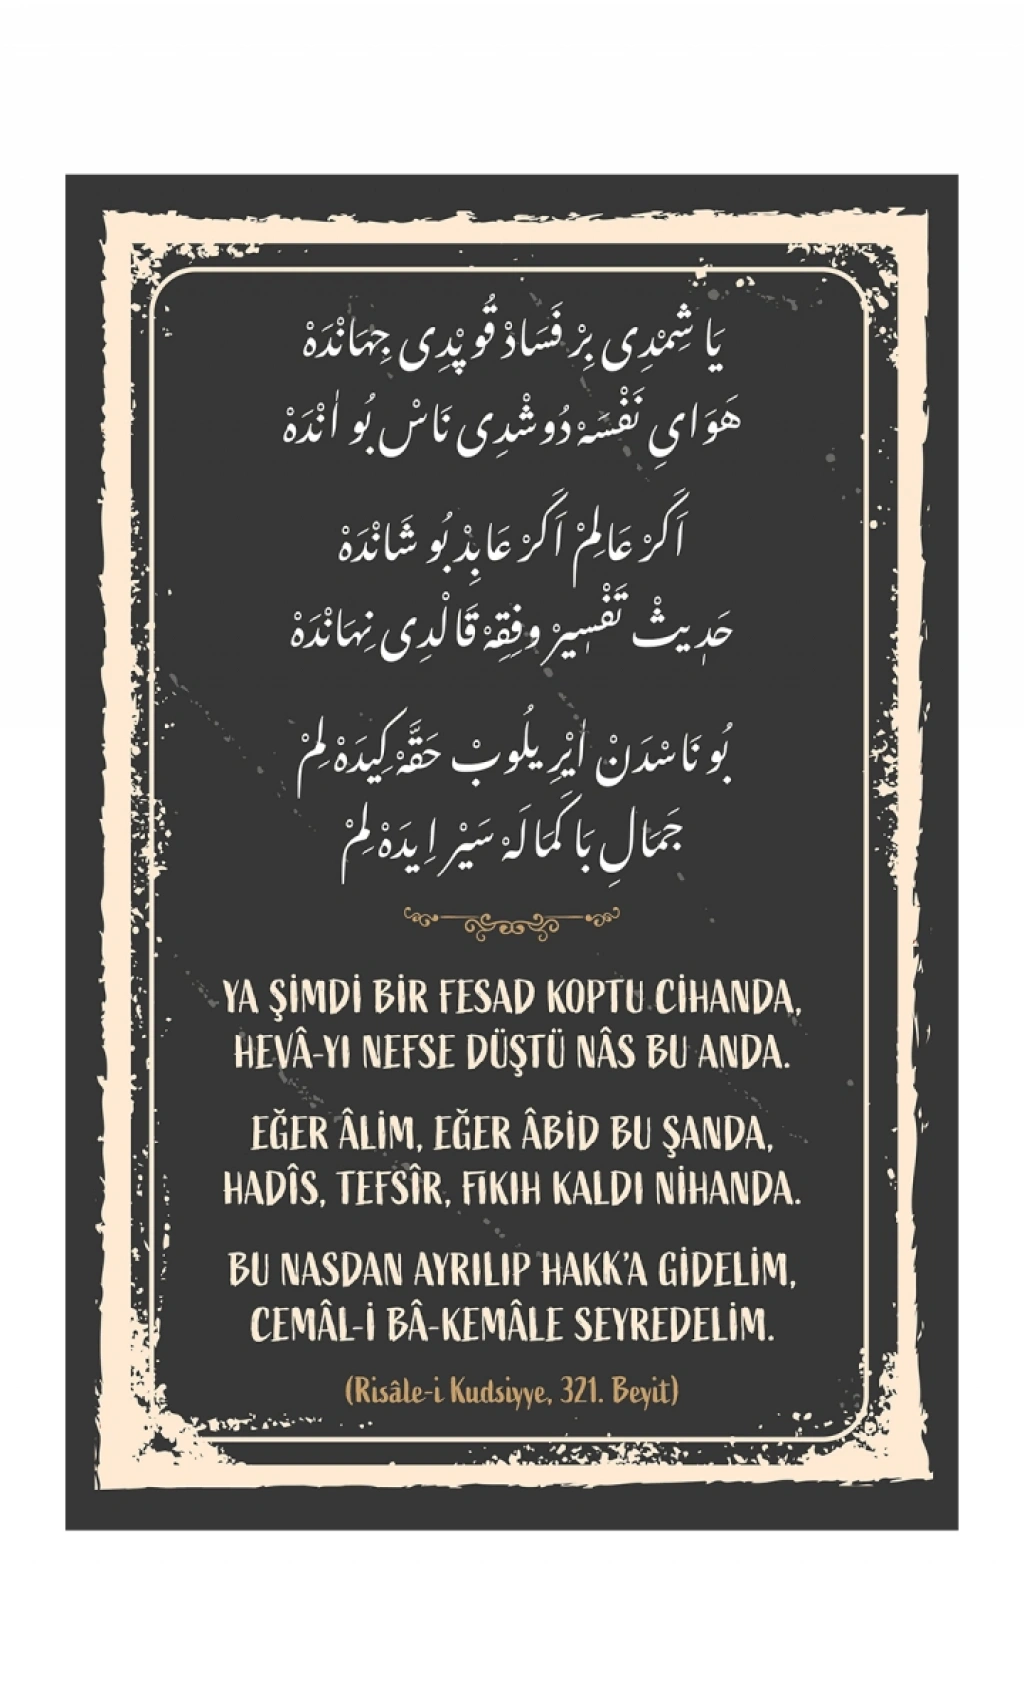 يَا شِمْدِى بِرْ فَسَادْ قُوپْدِى جِهَانْدَهْ
هَوَاىِ نَفْسَهْ دُوشْدِى نَاسْ بُو اٰنْدَهْ
اَكَرْ عَالِمْ اَكَرْ عَابِدْ بُو شَانْدَهْ
حَدٖيثْ تَفْسٖيرْ وفِقِهْ قَالْدِى نِهَانْدَهْ
بُو نَاسْدَنْ اٰيْرِيلُوبْ حَقَّهْ كِيدَهْ لِمْ
جَمَالِ بَا كَمَالَهْ سَيْر اِيدَهْ لِمْ
YA ŞİMDİ BİR FESAD KOPTU CİHANDA,
HEVÂ-YI NEFSE DÜŞTÜ NÂS BU ANDA.
EĞER ÂLİM, EĞER ÂBİD BU ŞANDA,
HADÎS, TEFSÎR, FIKIH KALDI NİHANDA.
BU NASDAN AYRILIP HAKK'A GİDELİM,
CEMÂL-İ BÂ-KEMÂLE SEYREDELİM.
(Risâle-i Kudsiyye, 321. Beyit)